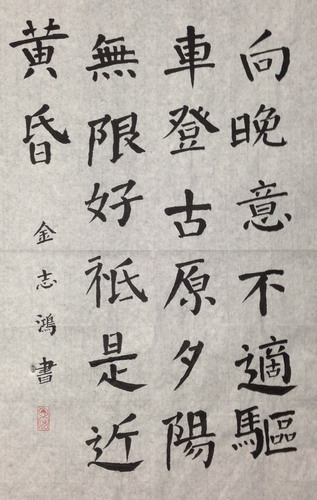 向晚意不適驅
車登古原夕陽
無限好祗是近
黄昏
金志鴻書